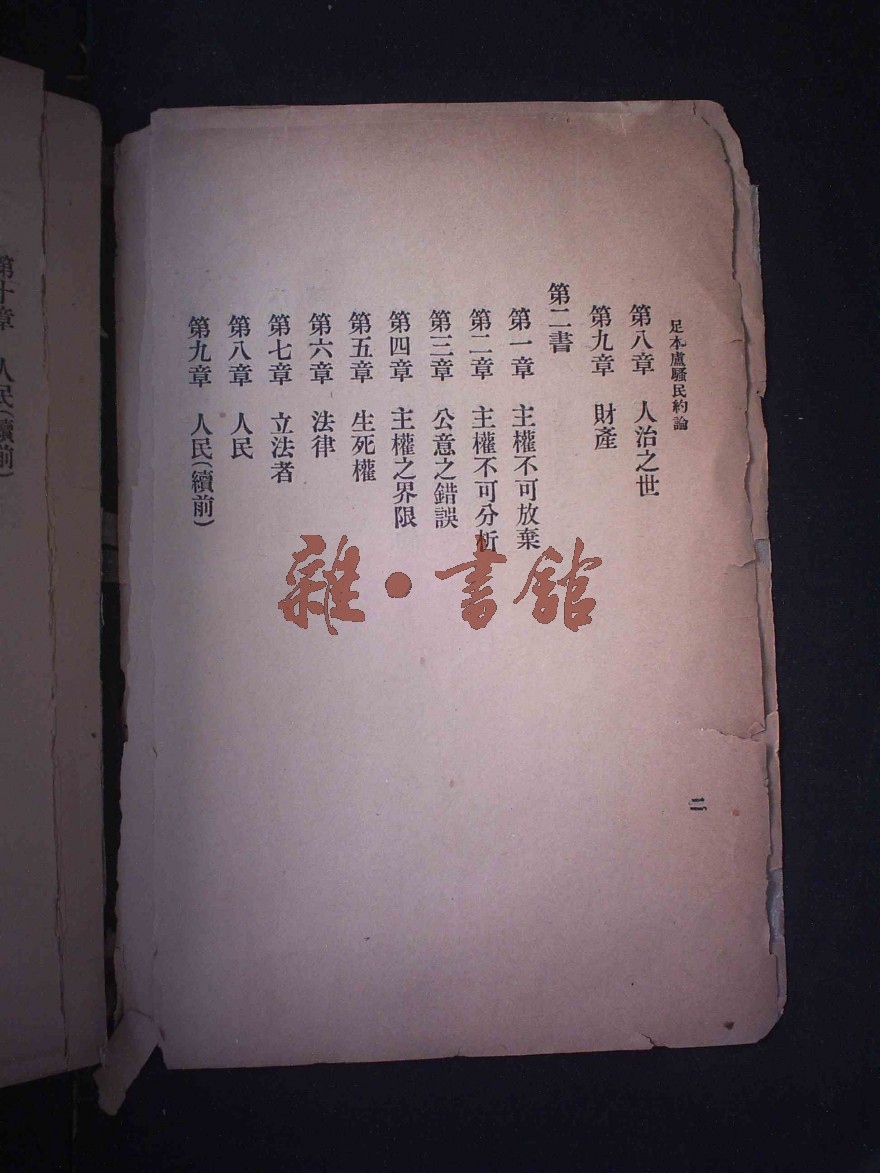 足本盧騷民約論
第八章 人治之世
第九章 財產
第二書
第一章 主權不可放棄
第二章 主權不可分析
第三章 公意之錯誤
第四章 主權之界限
第五章 生死權
第六章 法律
第七章 立法者
第八章 人民
第九章 人民(續前)
二
第十章 人民(續前)
雜·書館